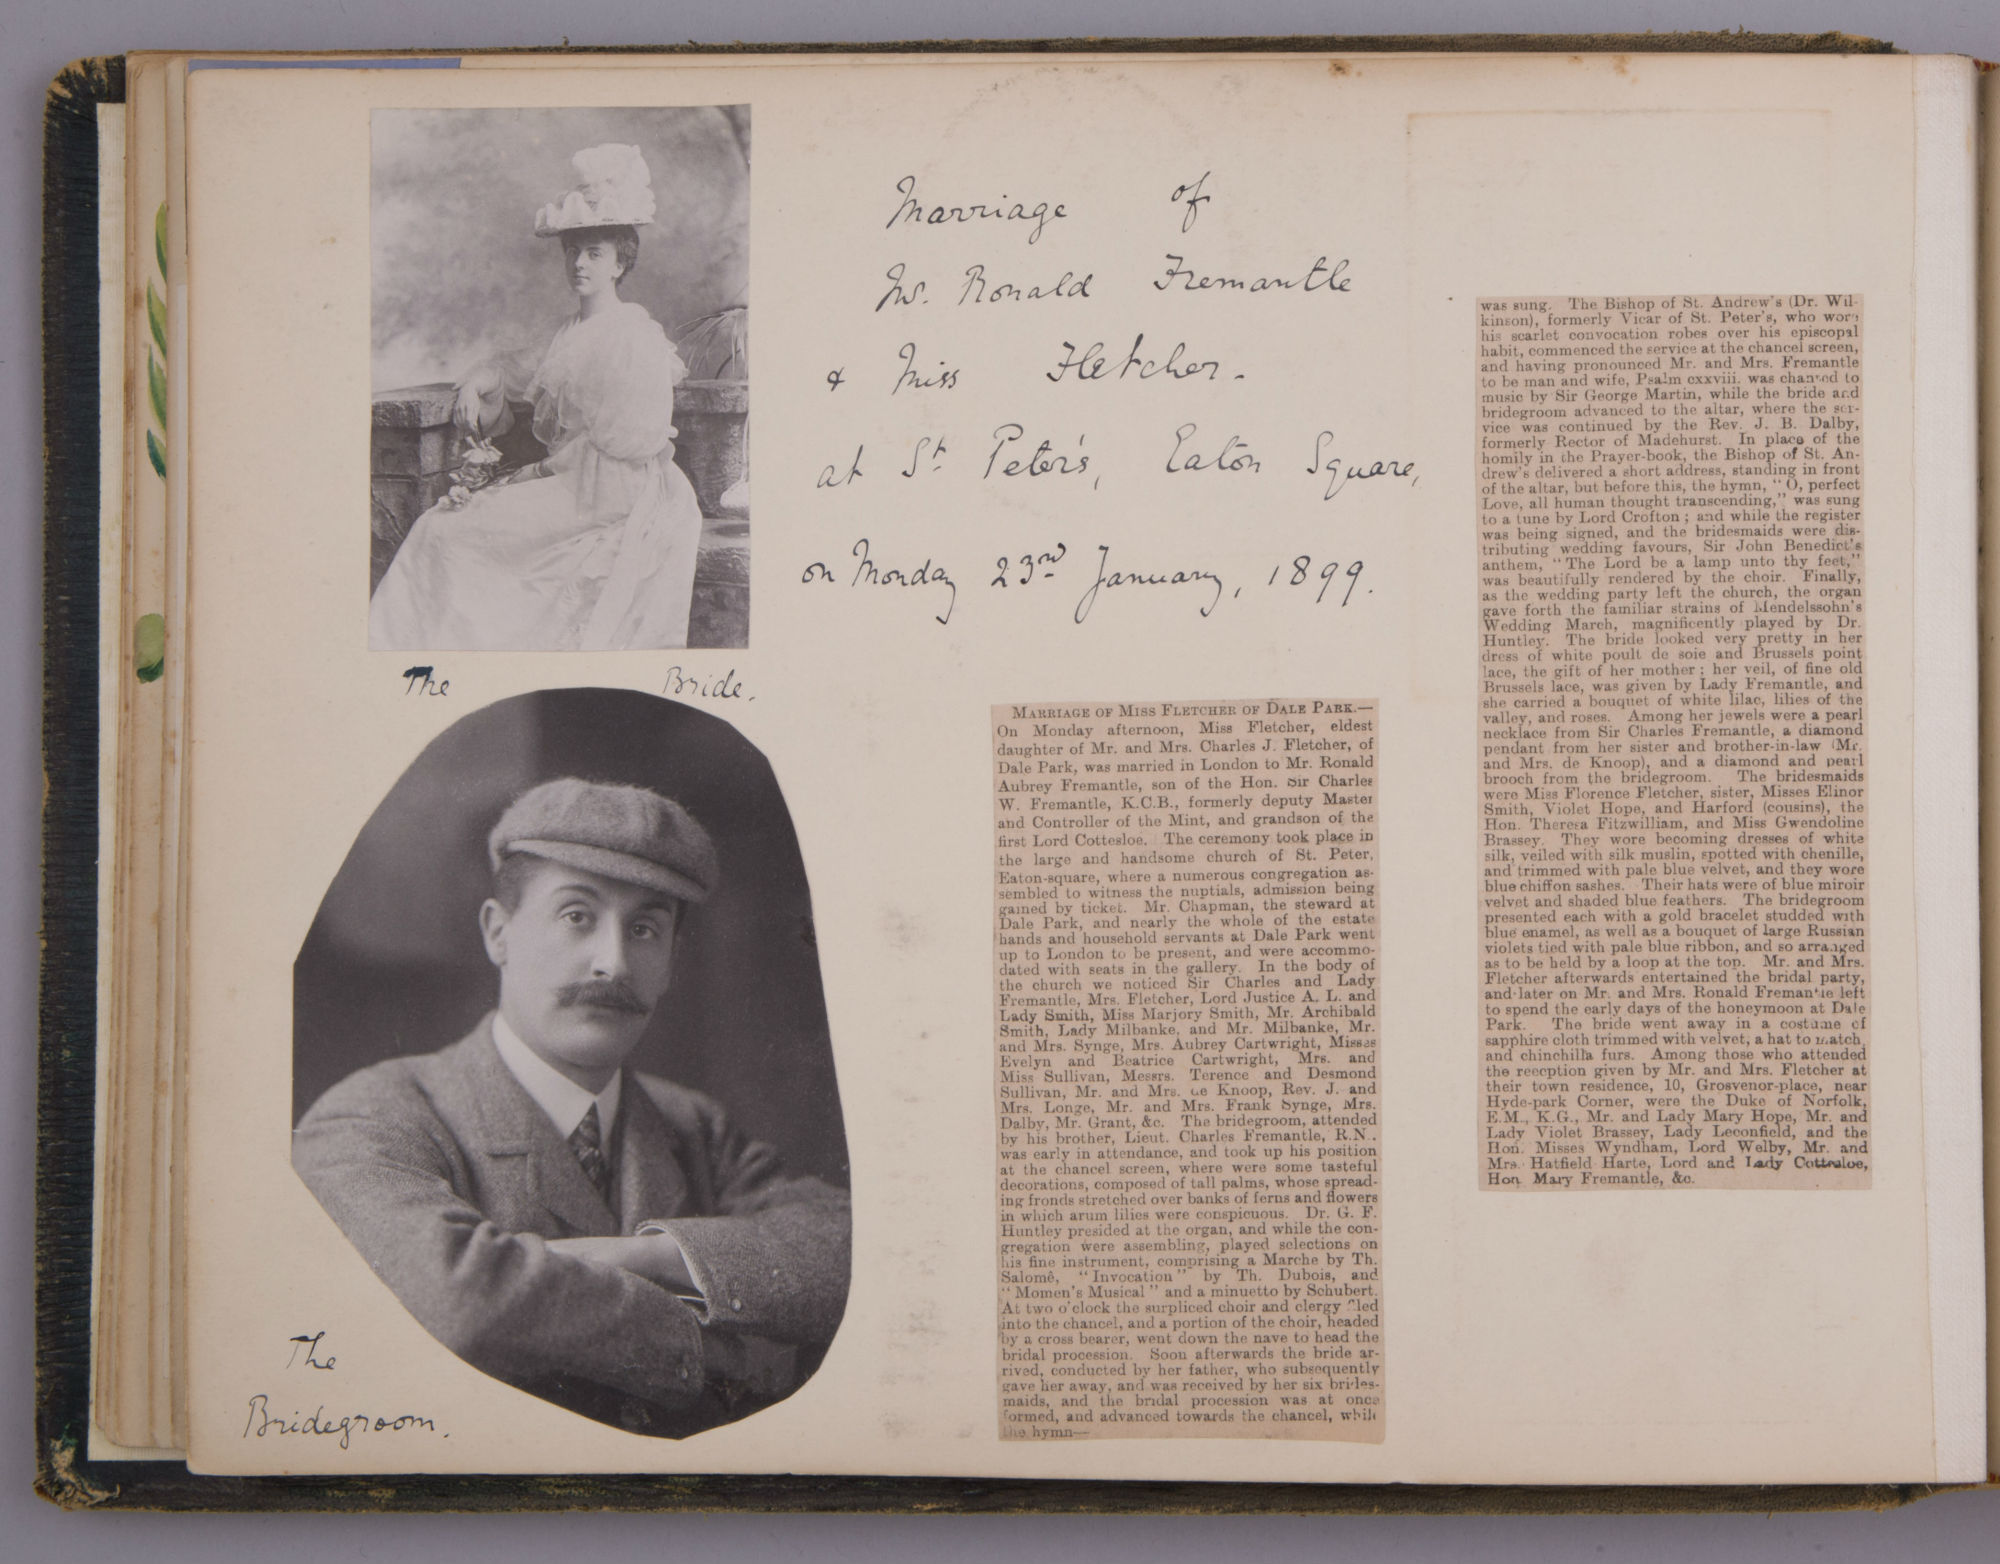 Marriage of
Mr. Ronald Fremantle
& Miss Fletcher.
at St. Peter's, Eaton Square,
on Monday 23rd January, 1899.
The Bride.
The
Bridegroom.
MARRIAGE OF MISS FLETCHER OF DALE PARK.—
On Monday afternoon, Miss Fletcher, eldest
daughter of Mr. and Mrs. Charles J. Fletcher, of
Dale Park, was married in London to Mr. Ronald
Aubrey Fremantle, son of the Hon. Sir Charles
W. Fremantle, K.C.B., formerly deputy Master
and Controller of the Mint, and grandson of the
first Lord Cottesloe. The ceremony took place in
the large and handsome church of St. Peter,
Eaton-square, where a numerous congregation as-
sembled to witness the nuptials, admission being
gained by ticket. Mr. Chapman, the steward at
Dale Park, and nearly the whole of the estate
hands and household servants at Dale Park went
up to London to be present, and were accommo-
dated with seats in the gallery. In the body of
the church we noticed Sir Charles and Lady
Fremantle, Mrs. Fletcher, Lord Justice A. L. and
Lady Smith, Miss Marjory Smith, Mr. Archibald
Smith, Lady Milbanke, and Mr. Milbanke, Mr.
and Mrs. Synge, Mrs. Aubrey Cartwright, Misses
Evelyn and Beatrice Cartwright, Mrs. and
Miss Sullivan, Messrs. Terence and Desmond
Sullivan, Mr. and Mrs. de Knoop, Rev. J. and
Mrs. Longe, Mr. and Mrs. Frank Synge, Mrs.
Dalby, Mr. Grant, &c. The bridegroom, attended
by his brother, Lieut. Charles Fremantle, R.N..
was early in attendance, and took up his position
at the chancel screen, where were some tasteful
decorations, composed of tall palms, whose spread-
ing fronds stretched over banks of ferns and flowers
in which arum lilies were conspicuous. Dr. G. F.
Huntley presided at the organ, and while the con-
gregation were assembling, played selections on
his fine instrument, comprising a Marche by Th.
Salomê, "Invocation" by Th. Dubois, and
"Momen's Musical" and a minuetto by Schubert.
At two o'clock the surpliced choir and clergy filed
into the chancel, and a portion of the choir, headed
by a cross bearer, went down the nave to head the
bridal procession. Soon afterwards the bride ar-
rived, conducted by her father, who subsequently
gave her away, and was received by her six brides-
maids, and the bridal procession was at once
formed, and advanced towards the chancel, while
the hymn—
was sung. The Bishop of St. Andrew's (Dr. Wil-
kinson), formerly Vicar of St. Peter's, who wore
his scarlet convocation robes over his episcopal
habit, commenced the service at the chancel screen,
and having pronounced Mr. and Mrs. Fremantle
to be man and wife, Psalm cxxviii. was chanted to
music by Sir George Martin, while the bride and
bridegroom advanced to the altar, where the ser-
vice was continued by the Rev. J. B. Dalby,
formerly Rector of Madehurst. In place of the
homily in the Prayer-book, the Bishop of St. An-
drew's delivered a short address, standing in front
of the altar, but before this, the hymn, "O, perfect
Love, all human thought transcending," was sung
to a tune by Lord Crofton; and while the register
was being signed, and the bridesmaids were dis-
tributing wedding favours, Sir John Benedict's
anthem, "The Lord be a lamp unto thy feet,"
was beautifully rendered by the choir. Finally,
as the wedding party left the church, the organ
gave forth the familiar strains of Mendelssohn's
Wedding March, magnificently played by Dr.
Huntley. The bride looked very pretty in her
dress of white poult de soie and Brussels point
lace, the gift of her mother; her veil, of fine old
Brussels lace, was given by Lady Fremantle, and
she carried a bouquet of white lilac, lilies of the
valley, and roses. Among her jewels were a pearl
necklace from Sir Charles Fremantle, a diamond
pendant from her sister and brother-in-law (Mr.
and Mrs. de Knoop), and a diamond and pearl
brooch from the bridegroom. The bridesmaids
were Miss Florence Fletcher, sister, Misses Elinor
Smith, Violet Hope, and Harford (cousins), the
Hon. Theresa Fitzwilliam, and Miss Gwendoline
Brassey. They wore becoming dresses of white
silk, veiled with silk muslin, spotted with chenille,
and trimmed with pale blue velvet, and they wore
blue chiffon sashes. Their hats were of blue miroir
velvet and shaded blue feathers. The bridegroom
presented each with a gold bracelet studded with
blue enamel, as well as a bouquet of large Russian
violets tied with pale blue ribbon, and so arranged
as to be held by a loop at the top. Mr. and Mrs.
Fletcher afterwards entertained the bridal party,
and later on Mr. and Mrs. Ronald Fremantle left
to spend the early days of the honeymoon at Dale
Park. The bride went away in a costume of
sapphire cloth trimmed with velvet, a hat to match
and chinchilla furs. Among those who attended
the reception given by Mr. and Mrs. Fletcher at
their town residence, 10, Grosvenor-place, near
Hyde-park Corner, were the Duke of Norfolk,
E.M., K.G., Mr. and Lady Mary Hope, Mr. and
Lady Violet Brassey, Lady Leconfield, and the
Hon. Misses Wyndham, Lord Welby, Mr. and
Mrs. Hatfield Harte, Lord and Lady Cottesloe,
Hon. Mary Fremantle, &c.